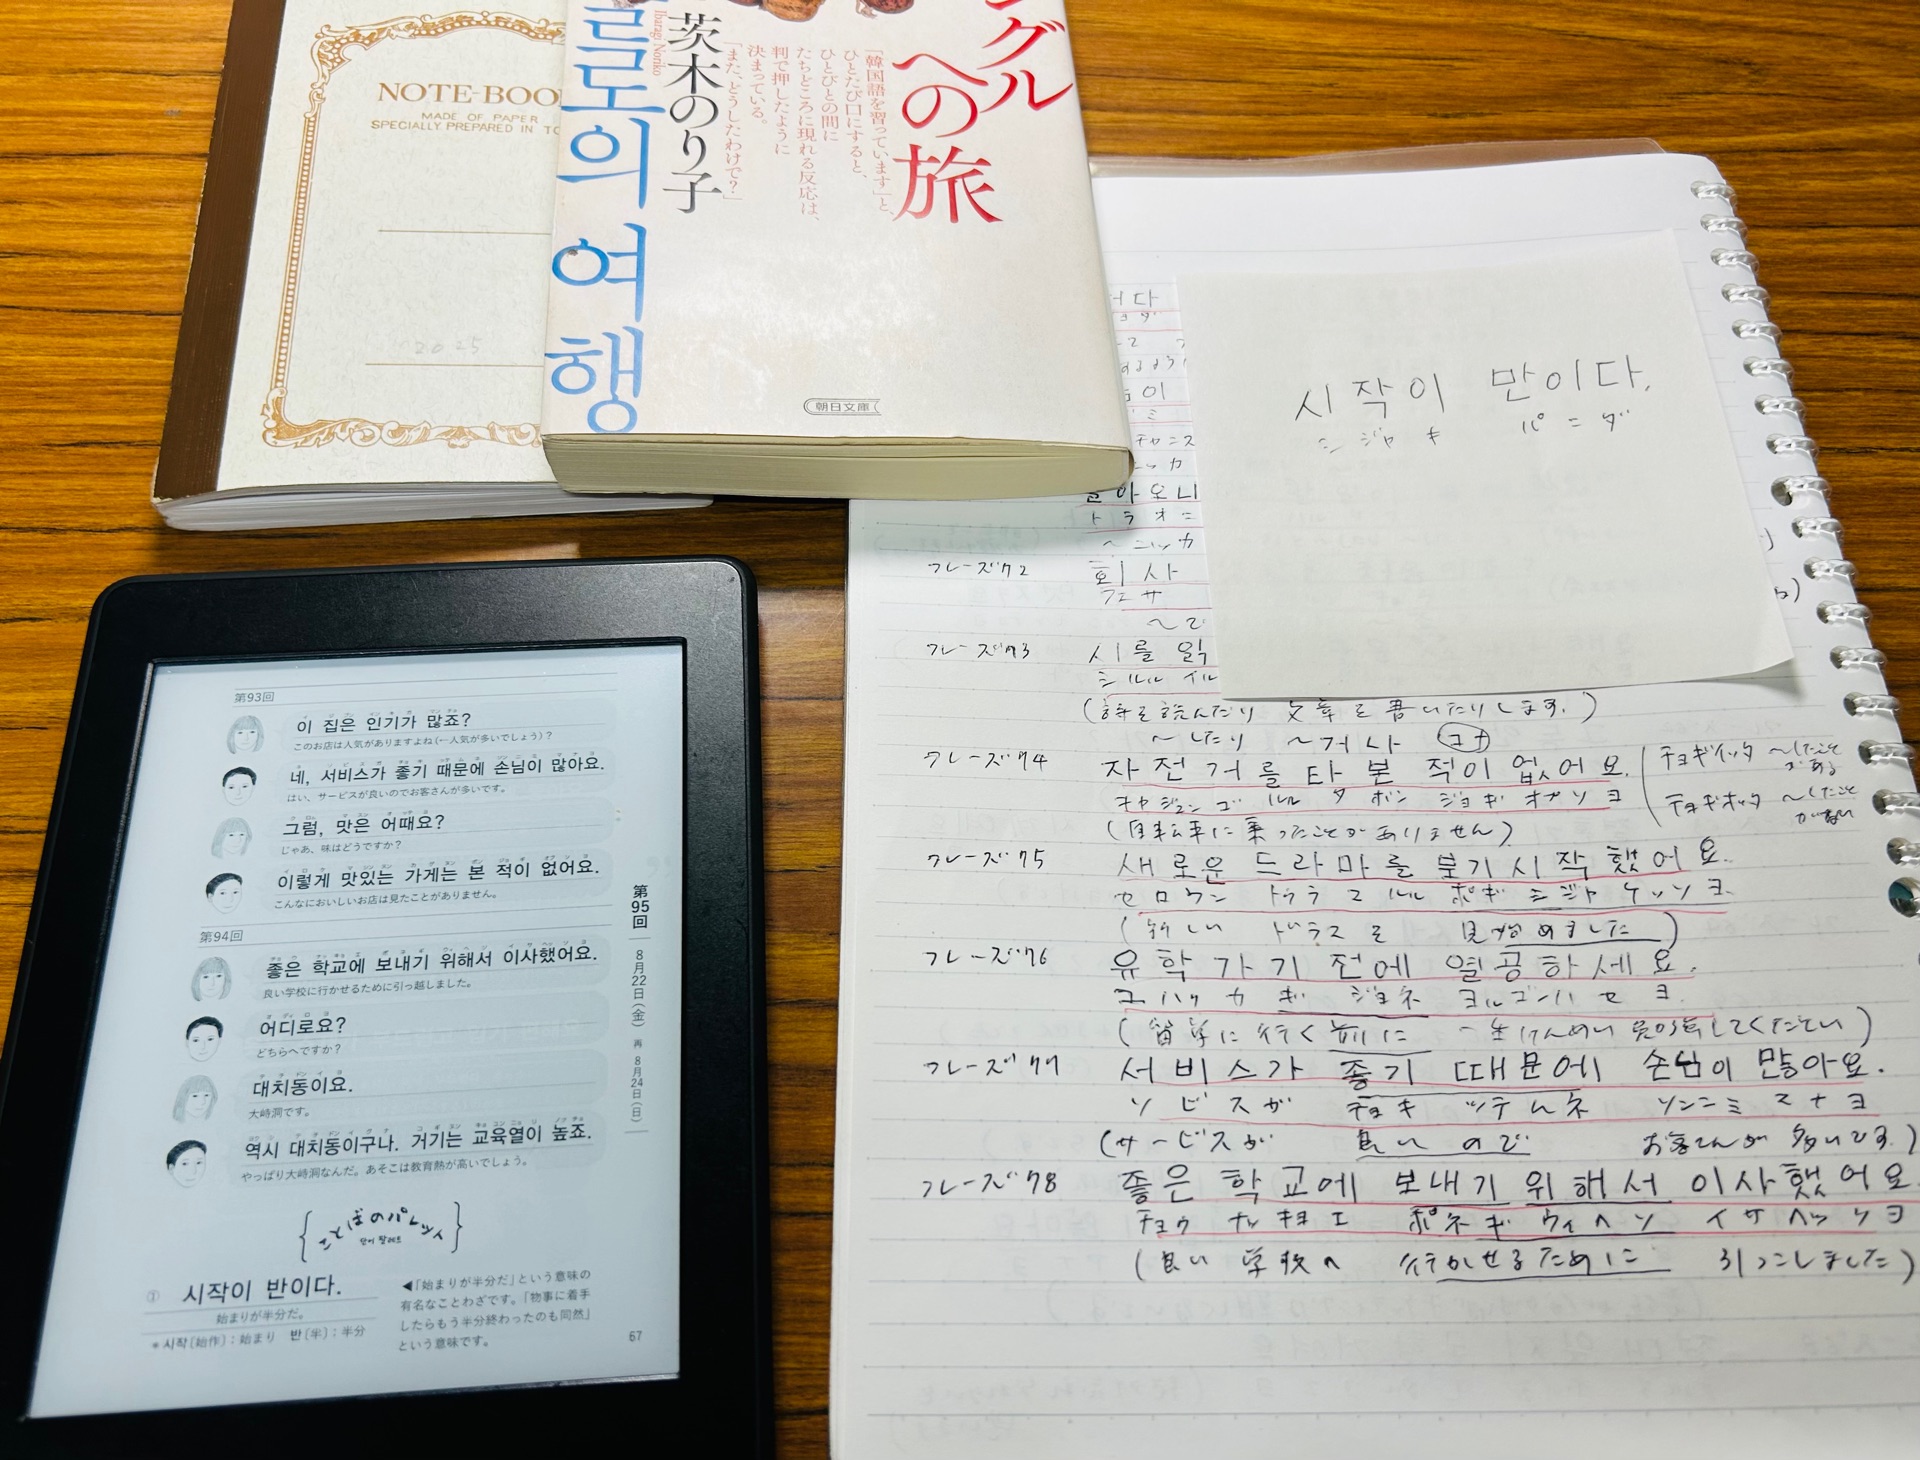 NOTE-BOO
MADE OF PAPER
SPECIALLY PREPARED IN TO
2025
ングル
への旅
「韓国語を習っています」と、
ひとたび口にすると、
ひとびとの間に
たちどころに現れる反応は、
判で押したように
決まっている。
「また、どうしたわけで?」
茨木のり子
Ibaragi Noriko
글로의 여행
朝日文庫
시작이 만이다.
シジャキ パニダ
第93回
이 집은 인기가 많죠?
このお店は人気がありますよね(←人気が多いでしょう)?
네, 서비스가 좋기 때문에 손님이 많아요.
はい、サービスが良いのでお客さんが多いです。
그럼, 맛은 어때요?
じゃあ、味はどうですか?
이렇게 맛있는 가게는 본 적이 없어요.
こんなにおいしいお店は見たことがありません。
第94回
좋은 학교에 보내기 위해서 이사했어요.
良い学校に行かせるために引っ越しました。
어디로요?
どちらへですか?
대치동이요.
大峙洞です。
역시 대치동이구나. 거기는 교육열이 높죠.
やっぱり大峙洞なんだ。あそこは教育熱が高いでしょう。
第95回 8月22日(金) 再 8月24日(日)
{ことばのパレット}
단어 팔레트
① 시작이 반이다.
始まりが半分だ。
*시작[始作]:始まり 반[半]:半分
◀「始まりが半分だ」という意味の
有名なことわざです。「物事に着手
したらもう半分終わったのも同然」
という意味です。
67
チャンス
ニッカ
아오니
トラオニ
〜ニッカ
フレーズ72 회사
フェサ
〜で
フレーズ73 시를 읽
シルル イル
(詩を読んだり 文章を書いたりします。)
〜したり 〜거나 コナ
フレーズ74 자전거를 타 본 적이 없어요.
チャジョンゴルル タ ボン ジョギ オプソヨ
(自転車に乗ったことがありません)
チョギイッタ 〜したことがある
チョギオッタ 〜したことがない
フレーズ75 새로운 드라마를 보기 시작했어요.
セロウン トゥラマルル ポギ シジャケッソヨ
(新しい ドラマを 見始めました)
フレーズ76 유학 가기 전에 열공하세요.
ユハッカギ ジョネ ヨルゴンハセヨ
(留学に行く前に 一生けんめい 勉強してください)
フレーズ77 서비스가 좋기 때문에 손님이 많아요.
ソビスガ チョキ ッテムネ ソンニミ マナヨ
(サービスが 良いので お客さんが多いです。)
フレーズ78 좋은 학교에 보내기 위해서 이사했어요
チョウ ナッキョエ ポネギ ウィヘソ イサヘッソヨ
(良い 学校へ 行かせるために 引っこしました)